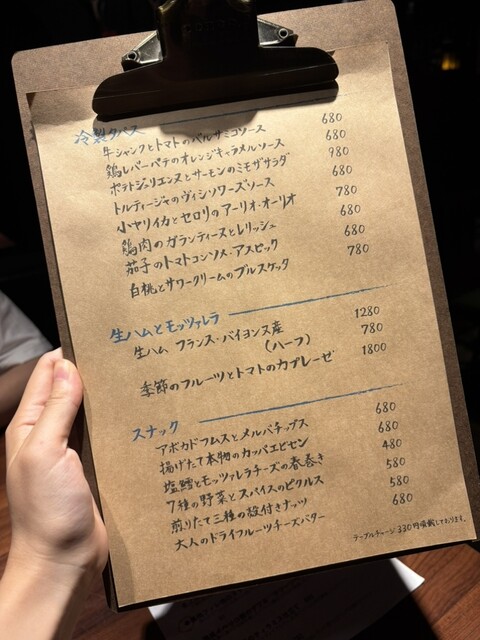 冷製タパス
牛シャンクとトマトのバルサミコソース 680
鶏レバーパテのオレンジキャラメルソース 680
ポテトジュリエンヌとサーモンのミモザサラダ 980
トルティージャのヴィシソワーズソース 680
小ヤリイカとセロリのアーリオ・オーリオ 780
鶏肉のガランティーヌとレリッシュ 680
茄子のトマトコンソメ・アスピック 680
白桃とサワークリームのブルスケッタ 780
生ハムとモッツァレラ
生ハム フランス・バイヨンヌ産 1280
(ハーフ) 780
季節のフルーツとトマトのカプレーゼ 1800
スナック
アボカドフムスとメルバチップス 680
揚げたて本物のカッパエビセン 680
塩鱈とモッツァレラチーズの春巻き 480
7種の野菜とスパイスのピクルス 580
煎りたて三種の殻付きナッツ 580
大人のドライフルーツチーズバター 680
テーブルチャージ 330円頂戴しております。